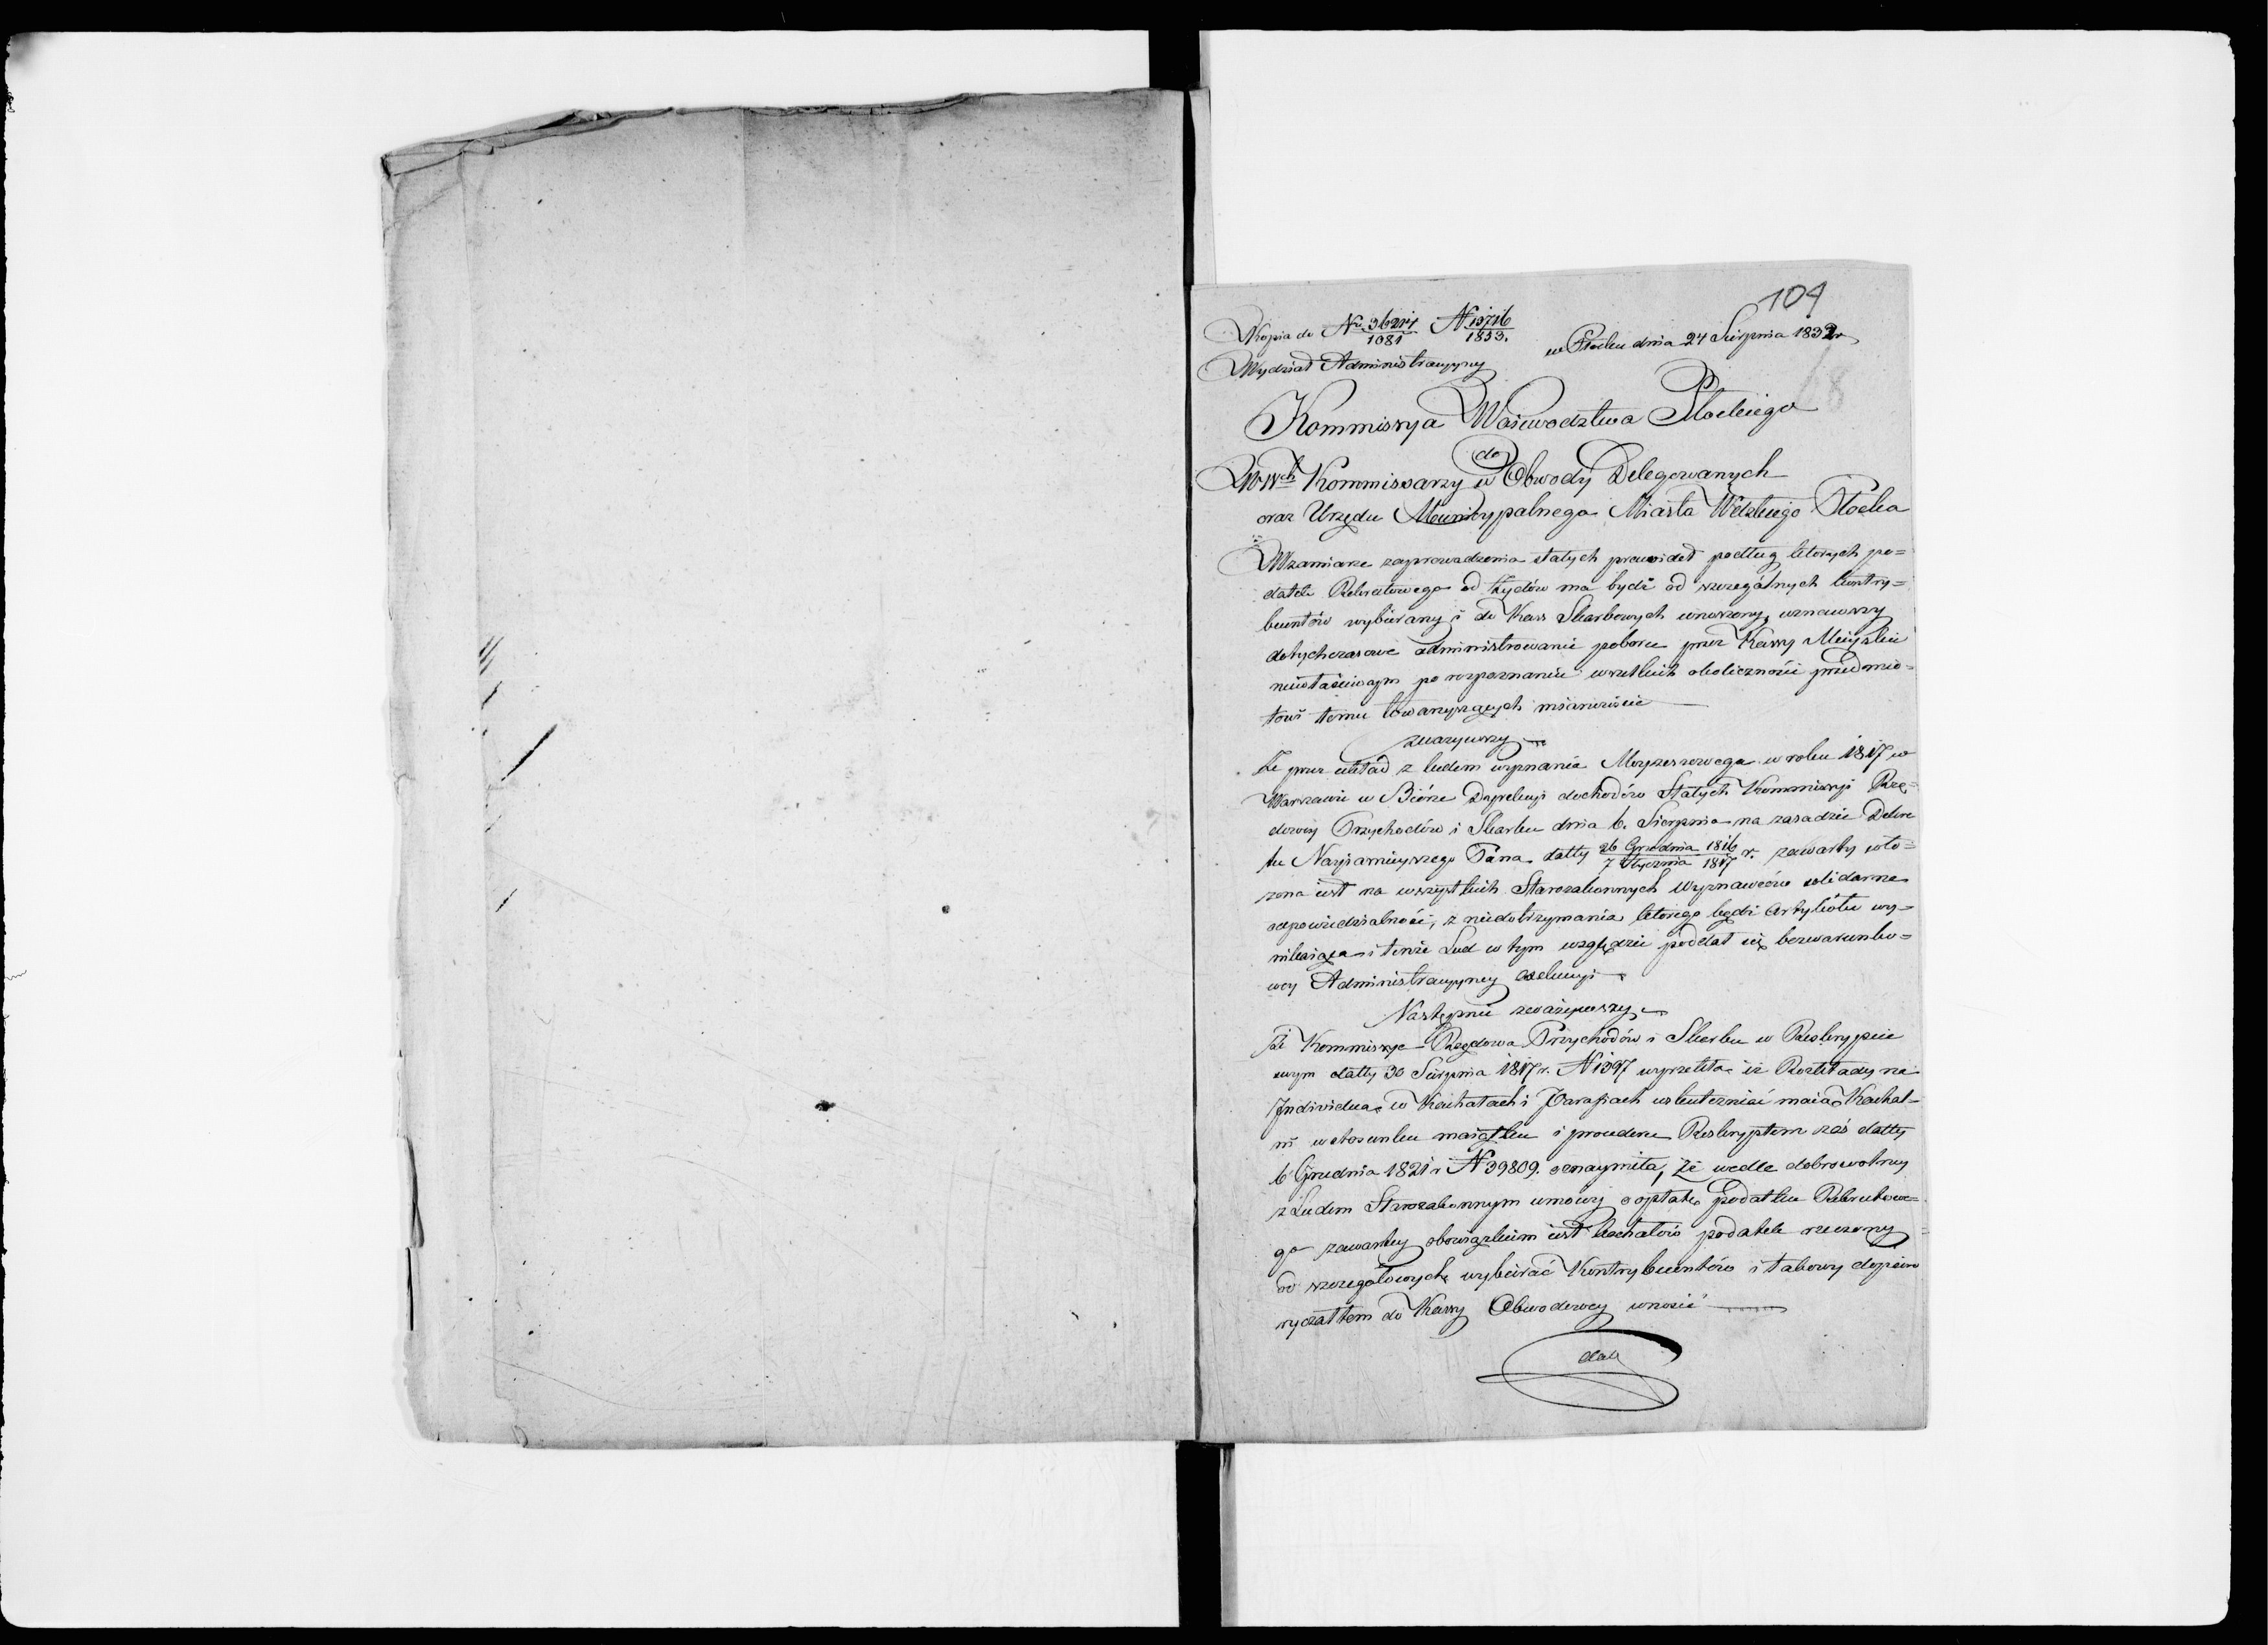 104
Kopia do Nru 36214/1081 N 13716/1853.
w Płocku dnia 24 Sierpnia 1832 r.
Wydział Administracyyny
Kommissya Woiewodztwa Płockiego
do
WWch Kommissarzy w Obwody Delegowanych
oraz Urzędu Municypalnego Miasta Wdzkiego Płocka
W zamiarze zaprowadzenia stałych prawideł podług których po=
datek Rekrutowego od Żydów ma bydź od szczegulnych kontry=
buentów wybierany i do Kass Skarbowych wnoszony, uznawszy
dotychczasowe administrowanie poboru przez Kassy Mieyskie
niewłaściwym po rozpoznaniu wszelkich okoliczności przedmio=
towi temu towarzyszących mianowicie
zważywszy
Że przez układ z ludem wyznania Moyżeszowego w roku 1817 w
Warszawie w Biórze Dyrekcyi dochodów Stałych Kommissyi Rzą=
dowey Przychodów i Skarbu dnia 6. Sierpnia na zasadzie Dekre
tu Nayjaśnieyszego Pana datty 26 Grudnia 1816/7 Stycznia 1817 r. zawarty wło=
żona iest na wszystkich Starozakonnych Wyznawców solidarna
odpowiedzialność, z niedotrzymania którego bądź Artykułu wy=
nikaiąca i tenże Lud w tym względzie poddał się bezwarunko=
wey Administracyyney exekucyi
Następnie zważywszy
Że Kommissya Rządowa Przychodów i Skarbu w Reskrypcie
swym datty 30 Sierpnia 1817 r. N 1397 wyrzekła iż Rozkłady na
Individua w Kachałach i Parafiach uskuteczniać maią Kachal=
ni w stosunku maiątku i procederu Reskryptem zaś datty
6 Grudnia 1821 r N 39809. oznaymiła, że wedle dobrowolney
z Ludem Starozakonnym umowy o opłatę podatku Rekrutowe=
go zawartey obowiązkiem iest kachałów podatek rzeczony
od szczegółowych wybierać Kontrybuentów i takowy dopiero
ryczałtem do Kassy Obwodowey wnosić
daley